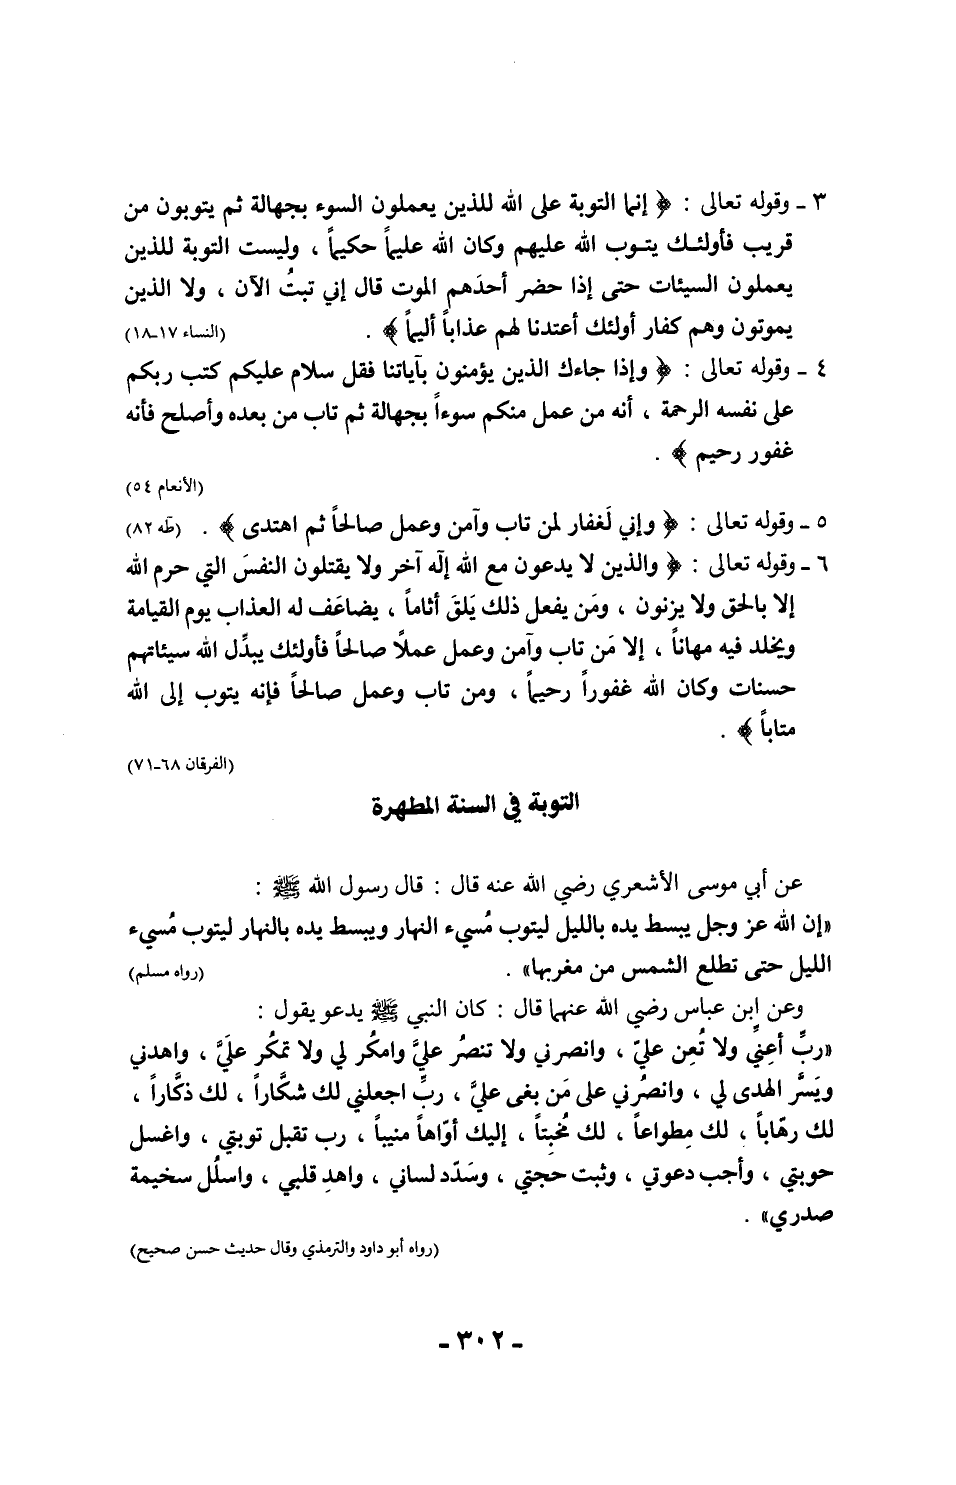 ٣ ـ وقوله تعالى : ﴿ إنما التوبة على الله للذين يعملون السوء بجهالة ثم يتوبون من
قريب فأولئـك يتـوب الله عليهم وكان الله عليماً حكيماً ، وليست التوبة للذين
يعملون السيئات حتى إذا حضر أحدَهم الموت قال إني تبتُ الآن ، ولا الذين
يموتون وهم كفار أولئك أعتدنا لهم عذاباً أليماً ﴾ . (النساء ١٧ـ١٨)
٤ ـ وقوله تعالى : ﴿ وإذا جاءك الذين يؤمنون بآياتنا فقل سلام عليكم كتب ربكم
على نفسه الرحمة ، أنه من عمل منكم سوءاً بجهالة ثم تاب من بعده وأصلح فأنه
غفور رحيم ﴾ .
(الأنعام ٥٤)
٥ ـ وقوله تعالى : ﴿ وإني لَغفار لمن تاب وآمن وعمل صالحاً ثم اهتدى ﴾ . (طه ٨٢)
٦ ـ وقوله تعالى : ﴿ والذين لا يدعون مع الله إلٓه آخر ولا يقتلون النفسَ التي حرم الله
إلا بالحق ولا يزنون ، ومَن يفعل ذلك يَلقَ أثاماً ، يضاعَف له العذاب يوم القيامة
ويخلد فيه مهاناً ، إلا مَن تاب وآمن وعمل عملاً صالحاً فأولئك يبدِّل الله سيئاتهم
حسنات وكان الله غفوراً رحيماً ، ومن تاب وعمل صالحاً فإنه يتوب إلى الله
متاباً ﴾ .
(الفرقان ٦٨ـ٧١)
التوبة في السنة المطهرة
عن أبي موسى الأشعري رضي الله عنه قال : قال رسول الله ﷺ :
«إن الله عز وجل يبسط يده بالليل ليتوب مُسيء النهار ويبسط يده بالنهار ليتوب مُسيء
الليل حتى تطلع الشمس من مغربها» . (رواه مسلم)
وعن ابن عباس رضي الله عنهما قال : كان النبي ﷺ يدعو يقول :
«ربِّ أعِنِّي ولا تُعِن عليّ ، وانصرني ولا تنصُر عليَّ وامكُر لي ولا تمكُر علَيَّ ، واهدني
ويَسَّر الهدى لي ، وانصُرني على مَن بغى عليَّ ، ربِّ اجعلني لك شكَّاراً ، لك ذكَّاراً ،
لك رهّاباً ، لك مِطواعاً ، لك مُخبِتاً ، إليك أوّاهاً منيباً ، رب تقبل توبتي ، واغسل
حوبتي ، وأجب دعوتي ، وثبت حجتي ، وسَدّد لساني ، واهدِ قلبي ، واسلُل سخيمة
صدري» .
(رواه أبو داود والترمذي وقال حديث حسن صحيح)
ـ ٣٠٢ ـ